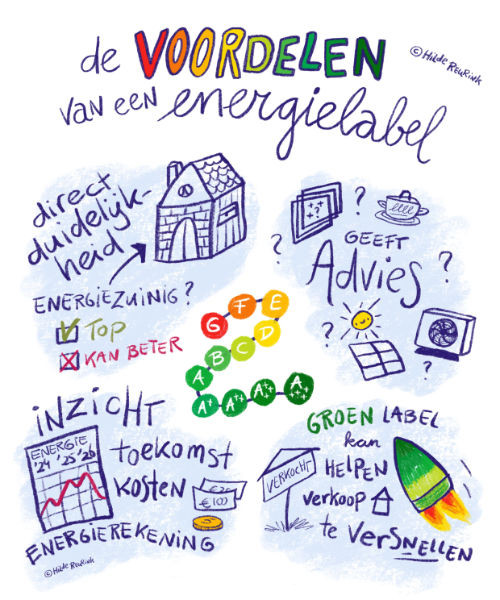 de VOORDELEN
van een energielabel
©Hilde Reurink
direct
duidelijk-
heid
ENERGIEZUINIG?
TOP
KAN BETER
? ? ? ? ?
GEEFT
Advies
G F E
B C D
A
A+ A++ A+++ A++++
INZICHT
ENERGIE
'24 '25 '26
toekomst
KOSTEN
€100
ENERGIEREKENING
©Hilde Reurink
GROEN LABEL
kan
HELPEN
verkoop
te VERSNELLEN
VERKOCHT